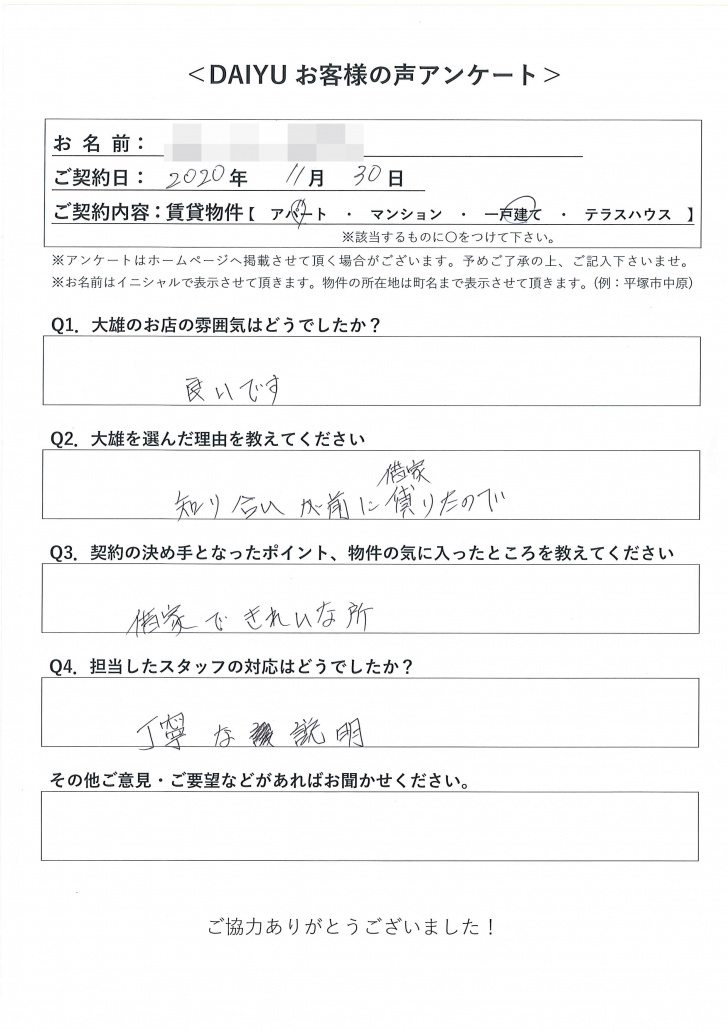 ＜DAIYU お客様の声アンケート＞
お 名 前：
ご契約日： 2020 年 11 月 30 日
ご契約内容：賃貸物件【 アパート ・ マンション ・ 一戸建て ・ テラスハウス 】
※該当するものに〇をつけて下さい。
※アンケートはホームページへ掲載させて頂く場合がございます。予めご了承の上、ご記入下さいませ。
※お名前はイニシャルで表示させて頂きます。物件の所在地は町名まで表示させて頂きます。（例：平塚市中原）
Q1．大雄のお店の雰囲気はどうでしたか？
良いです
Q2．大雄を選んだ理由を教えてください
借家
知り合いが前に借りたので
Q3．契約の決め手となったポイント、物件の気に入ったところを教えてください
借家できれいな所
Q4．担当したスタッフの対応はどうでしたか？
丁寧な説明
その他ご意見・ご要望などがあればお聞かせください。
ご協力ありがとうございました！